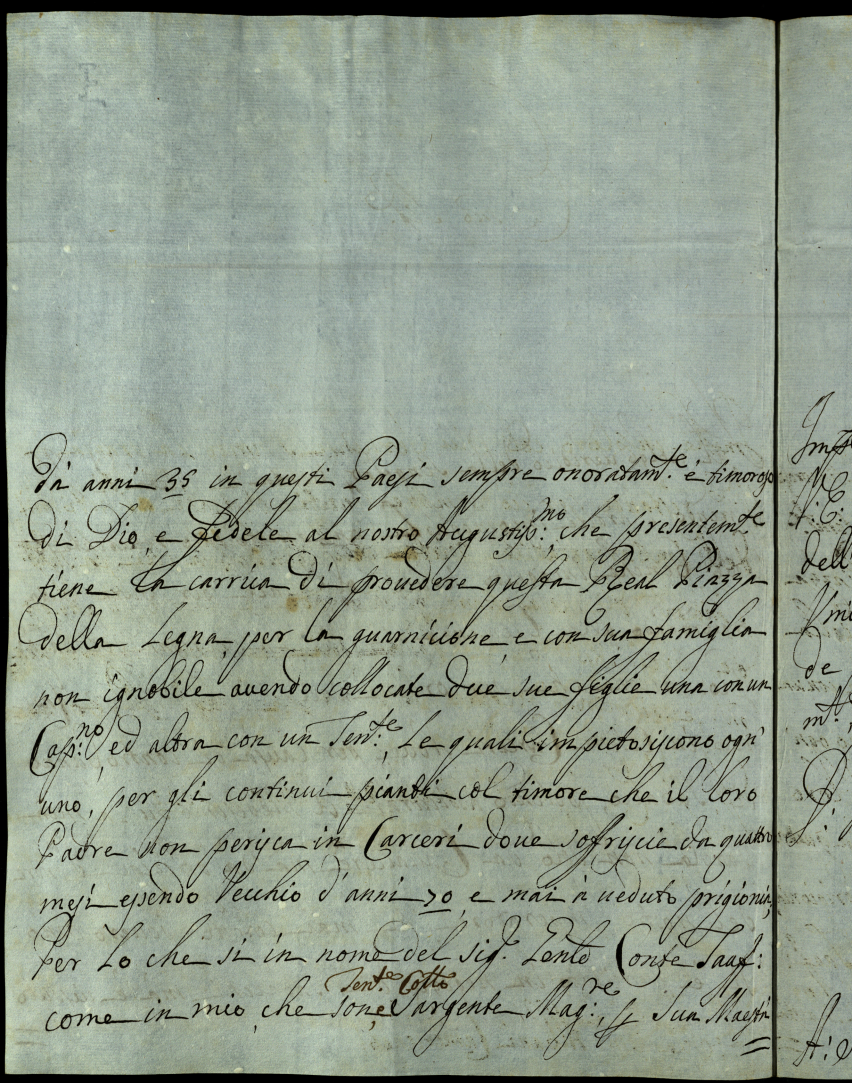 da anni 35 in questi Paesi sempre onoratam.te e timoroso
di Dio, e fedele al nostro Augustiss:mo, che presentem.te
tiene la carrica di provedere questa Real Piazza
della Legna, per la guarnicione, e con sua famiglia
non ignobile avendo collocate due sue figlie una con un
Cap:no, ed altra con un Ten.te, Le quali impietosiscono ogn'
uno, per gli continui pianti col timore che il loro
Padre non perisca in Carceri dove soffriscie da quattro
mesi essendo Vecchio d'anni 70, e mai à veduto prigionia,
Per Lo che si in nome del sig.r Conte Taaf:
Ten.te Coll.o
come in mio, che sono Sargente Mag:re, Sua Maestà
dell
de
m.ta